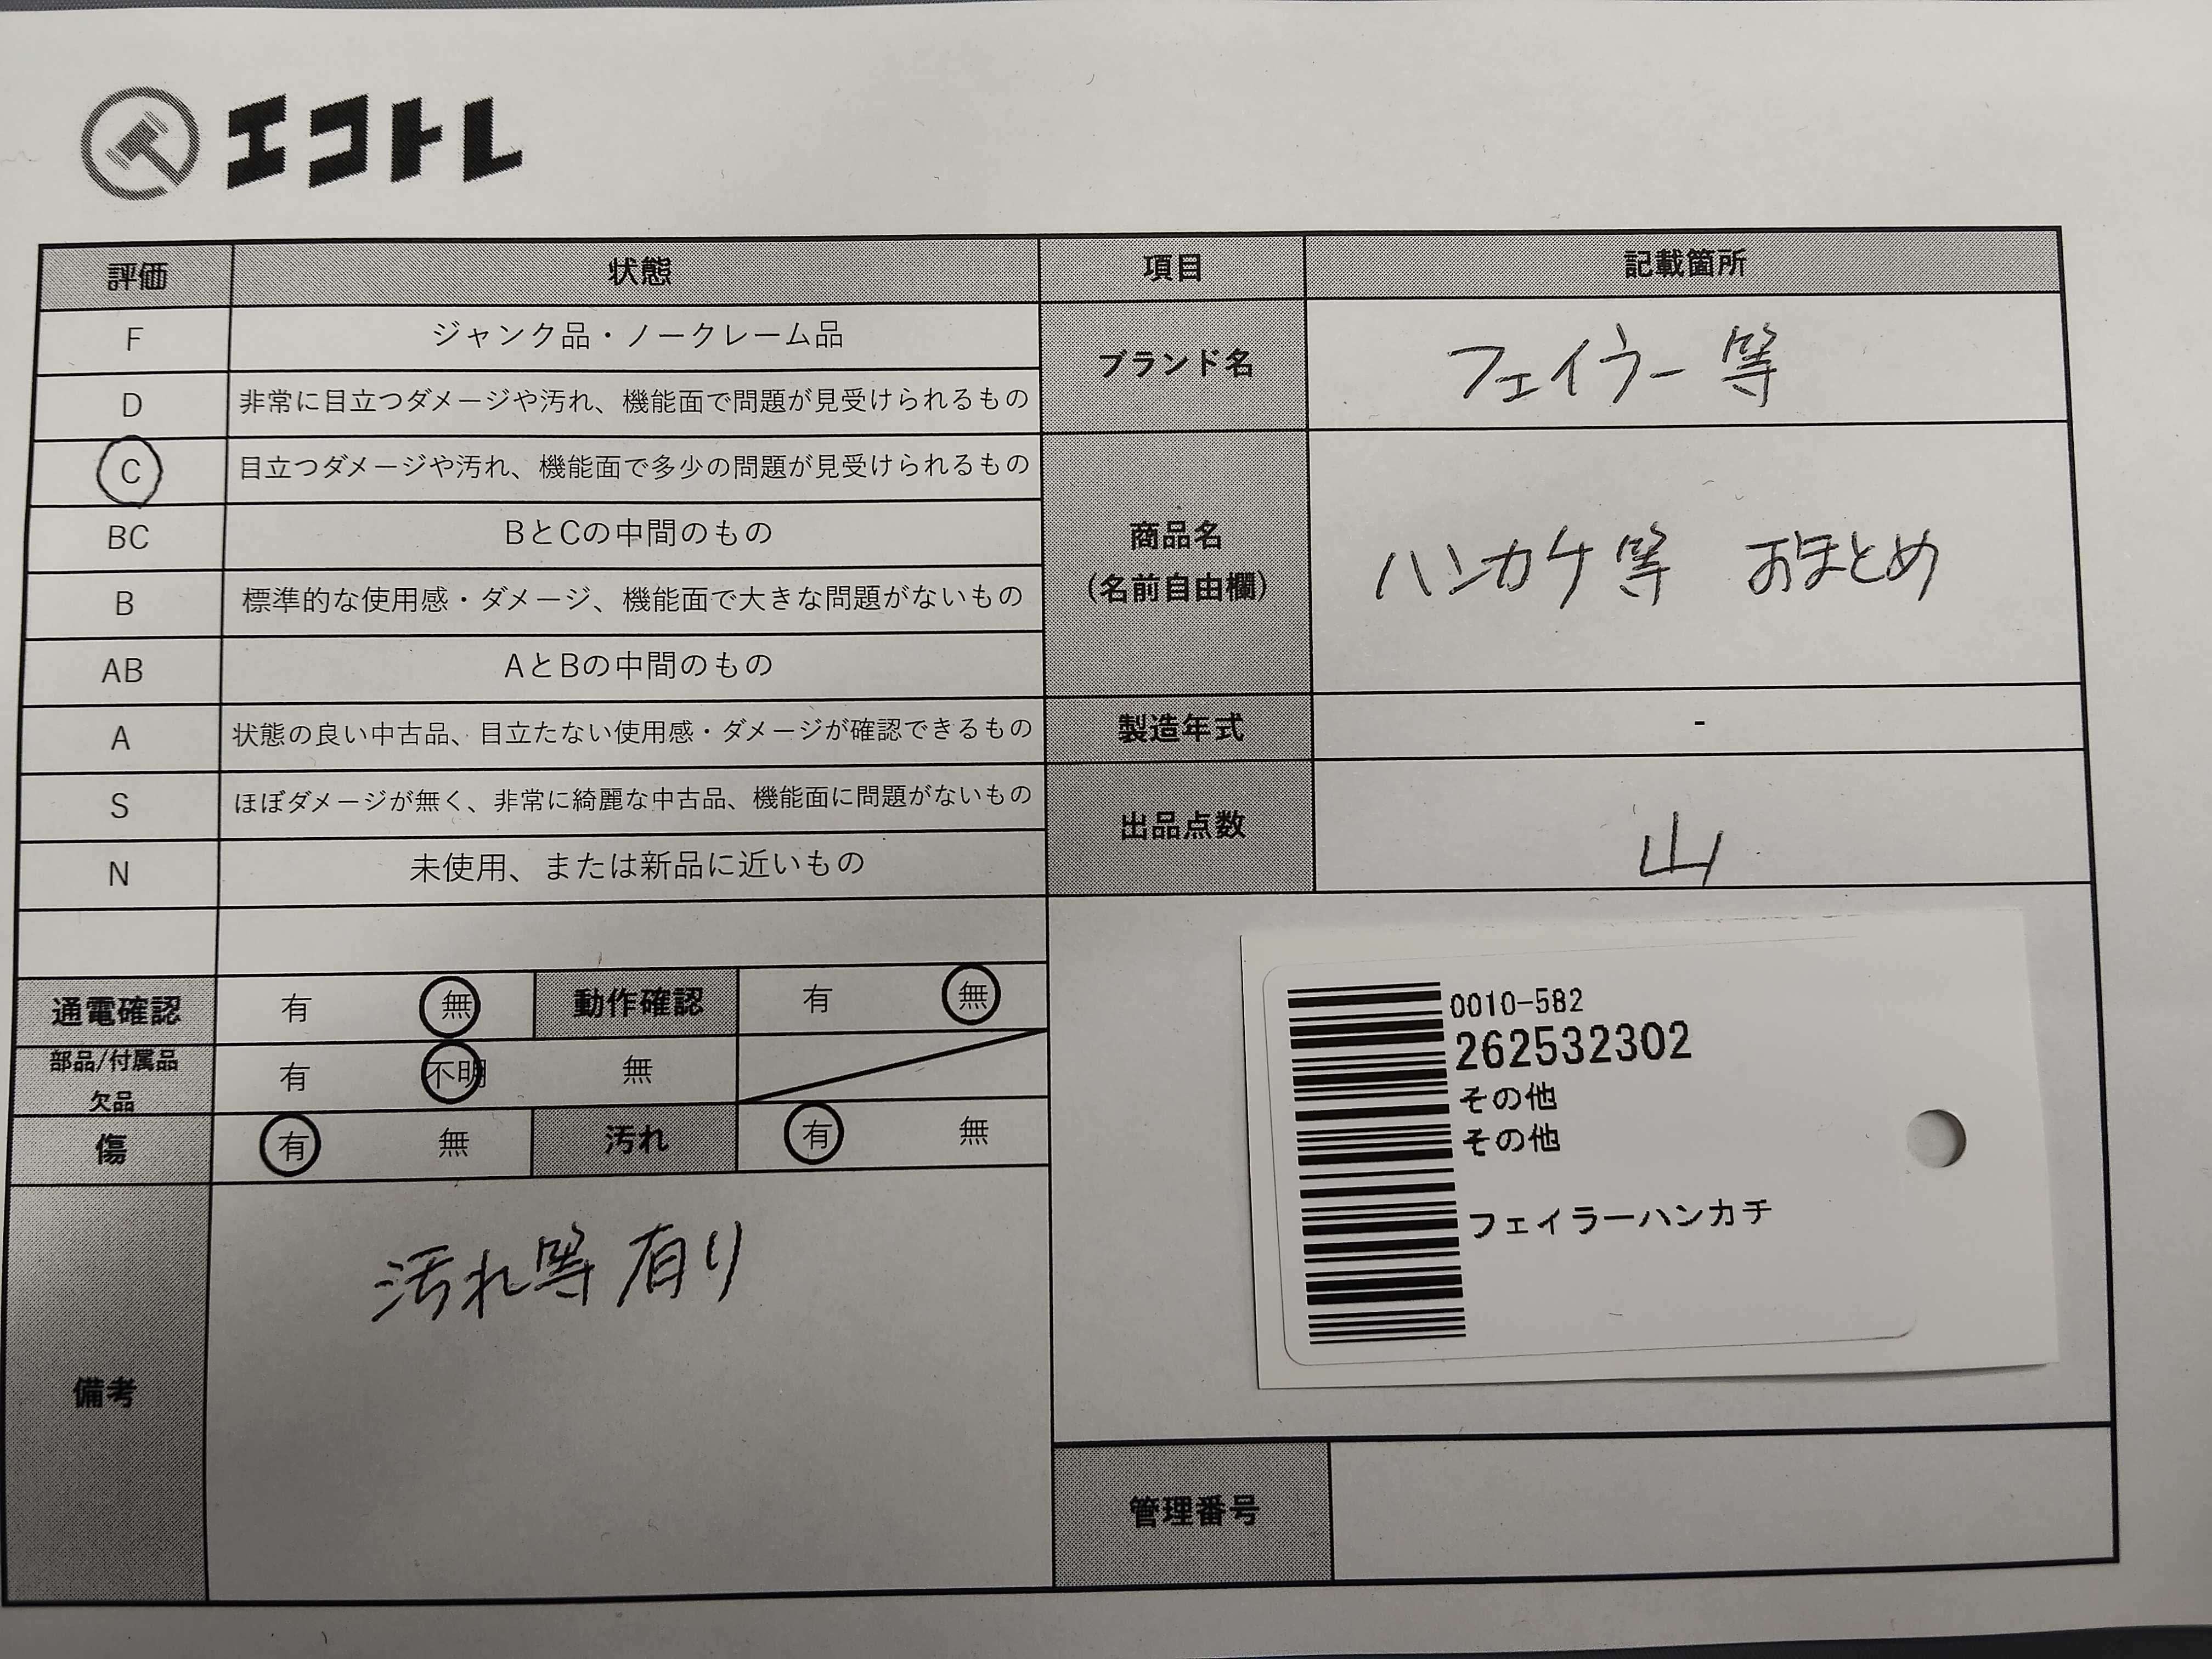 エコトレ
評価 状態 項目 記載箇所
F ジャンク品・ノークレーム品
ブランド名 フェイラー等
D 非常に目立つダメージや汚れ、機能面で問題が見受けられるもの
C 目立つダメージや汚れ、機能面で多少の問題が見受けられるもの
BC BとCの中間のもの
商品名
(名前自由欄)
ハンカチ等 おまとめ
B 標準的な使用感・ダメージ、機能面で大きな問題がないもの
AB AとBの中間のもの
A 状態の良い中古品、目立たない使用感・ダメージが確認できるもの
製造年式 -
S ほぼダメージが無く、非常に綺麗な中古品、機能面に問題がないもの
出品点数 山
N 未使用、または新品に近いもの
通電確認 有 無 動作確認 有 無
部品/付属品
欠品
有 不明 無
傷 有 無 汚れ 有 無
備考
汚れ等有り
0010-582
262532302
その他
その他
フェイラーハンカチ
管理番号